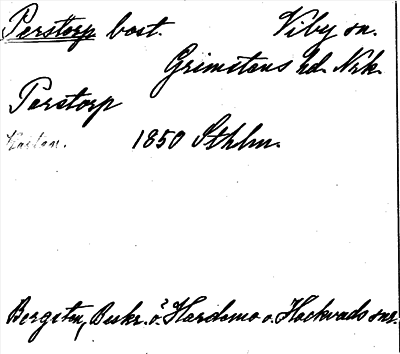 Perstorp bost. Viby sn.
Grimstens hd. Nrk.
Perstorp
Kartan. 1850 Sthlm.
Bergsten, Beskr. ö. Hardemo o. Hackvads snr.